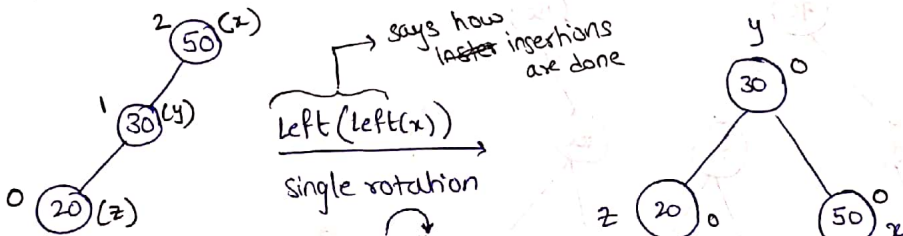 2
50 (x)
1
30 (y)
0
20 (z)
says how
insertions
are done
Left(Left(x))
single rotation
y
30 0
z 20 0
50 0
x